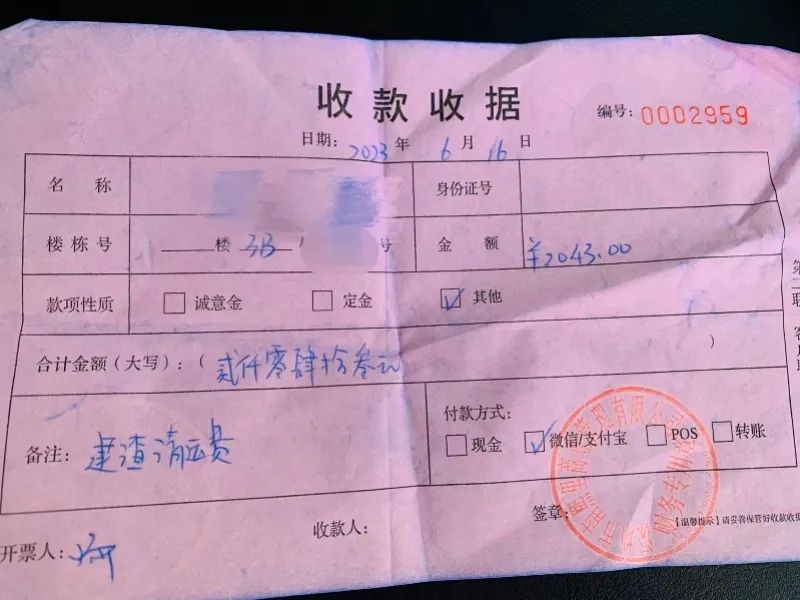 收款收据
编号: 0002959
日期: 2023 年 6 月 16 日
名 称
身份证号
楼栋号 楼 3B 号
金 额 ¥2043.00
款项性质 诚意金 定金 其他
合计金额(大写):( 贰仟零肆拾叁元 )
备注: 建渣清运费
付款方式:
现金 微信/支付宝 POS 转账
签章:
【温馨提示】请妥善保管好收款收据
收款人:
开票人:
第二联